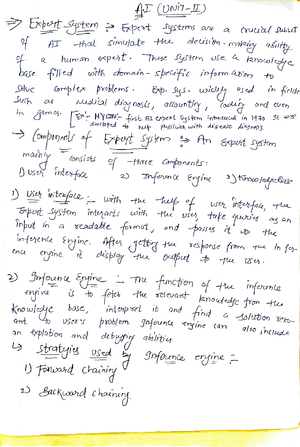 AI (UNIT-II)
⇒ Expert System :- Expert Systems are a crucial subset
of AI that simulate the decision-making ability
of a human expert. These system use a knowledge
base filled with domain-specific information to
solve complex problems. Exp. Sys. widely used in fields
such as medical diagnosis, accounting, coding and even
in games. [Ex:- first AI expert system introduced in 1970 It was
to help physician with disease diagnosis
→ Components of Expert System :- An Expert system
mainly consists of three components:
1) User interface 2) Inference Engine 3) Knowledge base
1) User interface :- with the help of user interface, the
Expert System interacts with the user, take queries as an
input in a readable format, and passes it to the
inference Engine. After getting the response from the Infer-
ence engine it display the output to the user.
2) Inference Engine :- The function of the inference
engine is to fetch the relevant knowledge from the
knowledge base, interpret it and find a solution rele-
ant to user's problem Inference engine can also include
an explation and debugging abilities
↳ Strategies used by Inference engine :-
1) Forward Chaining
2) Backward Chaining.